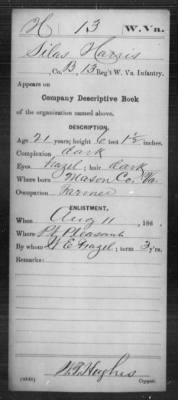 H | 13 | W. Va.
Silas Hargis
Co. B, 13 Reg't W. Va. Infantry.
Appears on
Company Descriptive Book
of the organization named above.
DESCRIPTION.
Age 21 years; height 6 feet 1½ inches.
Complexion dark
Eyes Hazel; hair dark
Where born Mason Co. Va.
Occupation Farmer
ENLISTMENT.
When Aug 11, 186 .
Where Pt. Pleasant
By whom E. Frazel; term 3 y'rs.
Remarks:
W.T. Hughes
Copyist.